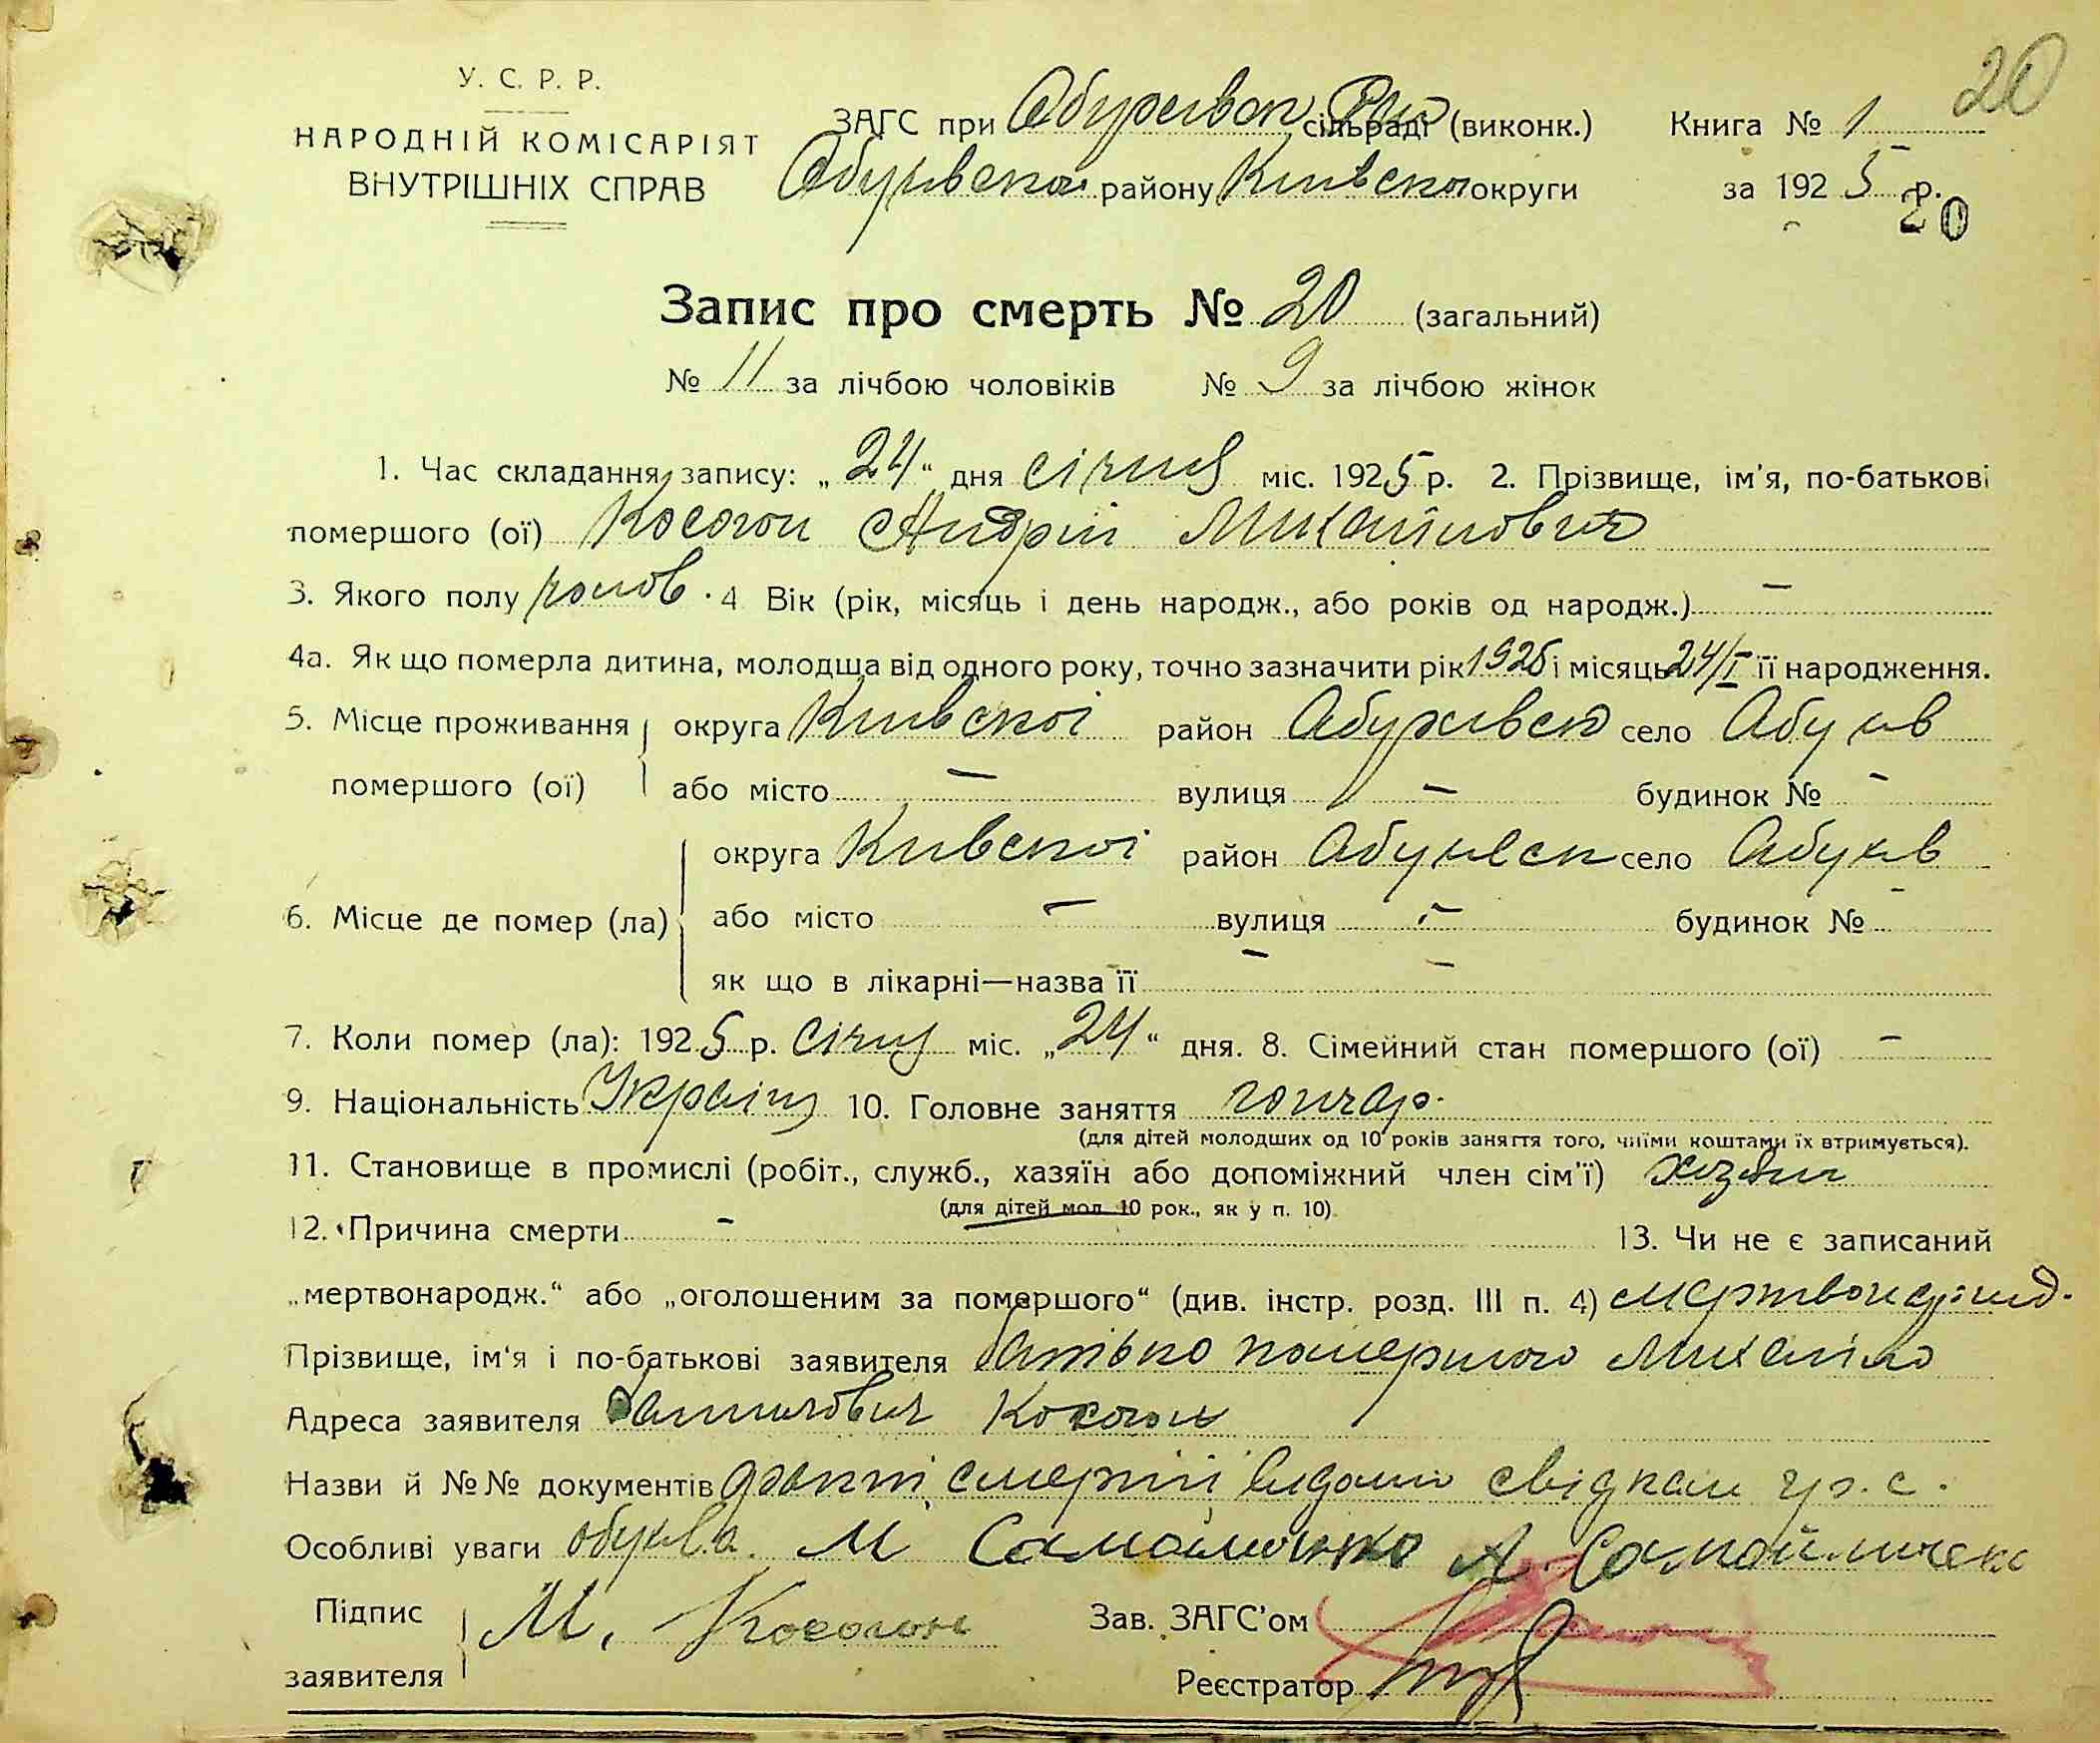 20
У. С. Р. Р.
НАРОДНІЙ КОМІСАРІЯТ
ВНУТРІШНІХ СПРАВ
ЗАГС при сільраді (виконк.)
району округи
Книга № 1
за 1925 р.
20
Запис про смерть № 20 (загальний)
№ 11 за лічбою чоловіків № 9 за лічбою жінок
1. Час складання запису: „24“ дня січня міс. 1925 р. 2. Прізвище, ім'я, по-батькові
помершого (ої) Косогон Андрій Михайлович
3. Якого полу чолов. 4 Вік (рік, місяць і день народж., або років од народж.) —
4а. Як що померла дитина, молодща від одного року, точно зазначити рік 1925 і місяць 24/I її народження.
5. Місце проживання помершого (ої) округа Київскоі район село
або місто — вулиця — будинок № —
6. Місце де помер (ла) округа Київскоі район село
або місто — вулиця — будинок № —
як що в лікарні—назва її —
7. Коли помер (ла): 1925 р. січня міс. „24“ дня. 8. Сімейний стан помершого (ої) —
9. Національність 10. Головне заняття гончар.
(для дітей молодших од 10 років заняття того, чиїми коштами їх втримується).
11. Становище в промислі (робіт., служб., хазяїн або допоміжний член сім'ї)
(для дітей мол. 10 рок., як у п. 10)
12. Причина смерти — 13. Чи не є записаний
„мертвонародж.“ або „оголошеним за помершого“ (див. інстр. розд. III п. 4)
Прізвище, ім'я і по-батькові заявителя батько помершого Михайло
Адреса заявителя Косогон
Назви й №№ документів смерті свідкам гр. с.
Особливі уваги М Самойленко А. Самойленко
Підпис заявителя М. Косогон
Зав. ЗАГС'ом
Реєстратор